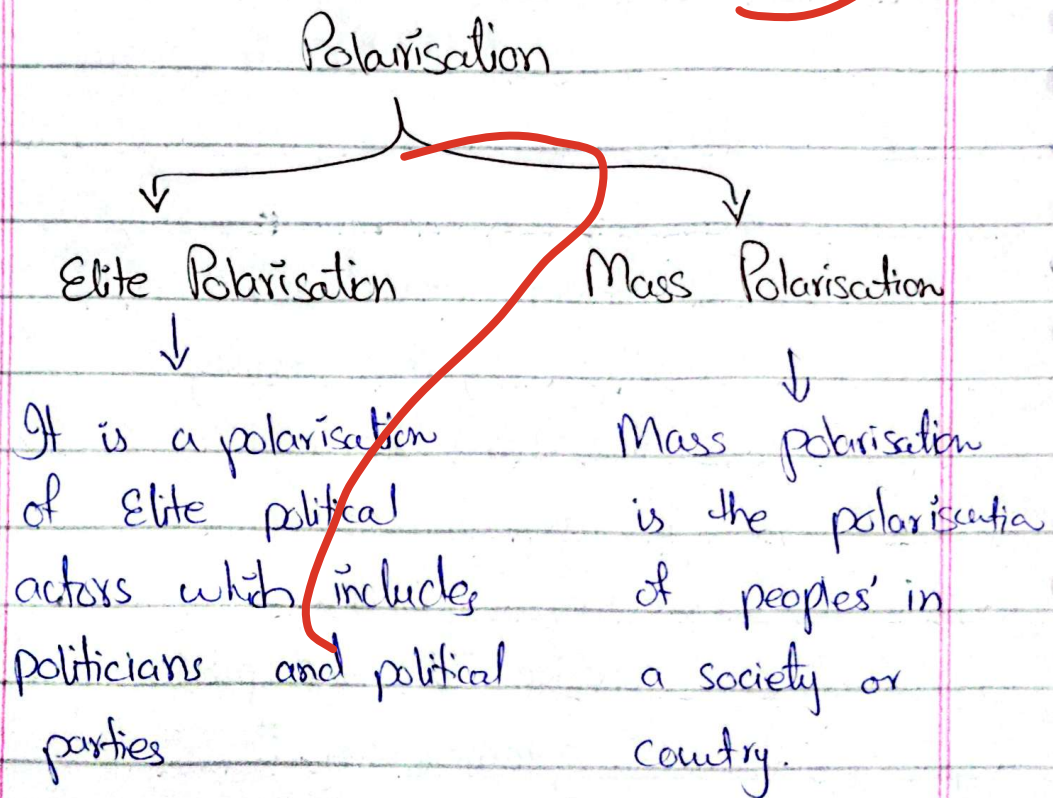 Polarisation
Elite Polarisation
Mass Polarisation
It is a polarisation
of Elite political
actors which includes
politicians and political
parties
Mass polarisation
is the polarisatio
of peoples' in
a society or
country.